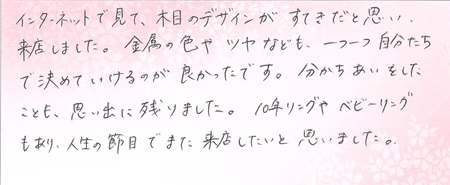 インターネットで見て、木目のデザインが すてきだと思い、
来店しました。 金属の色や ツヤなども、一つ一つ 自分たち
で決めていけるのが 良かったです。 分かちあいをした
ことも、思い出に 残りました。 10年リングや ベビーリング
もあり、人生の節目でまた 来店したいと 思いました。